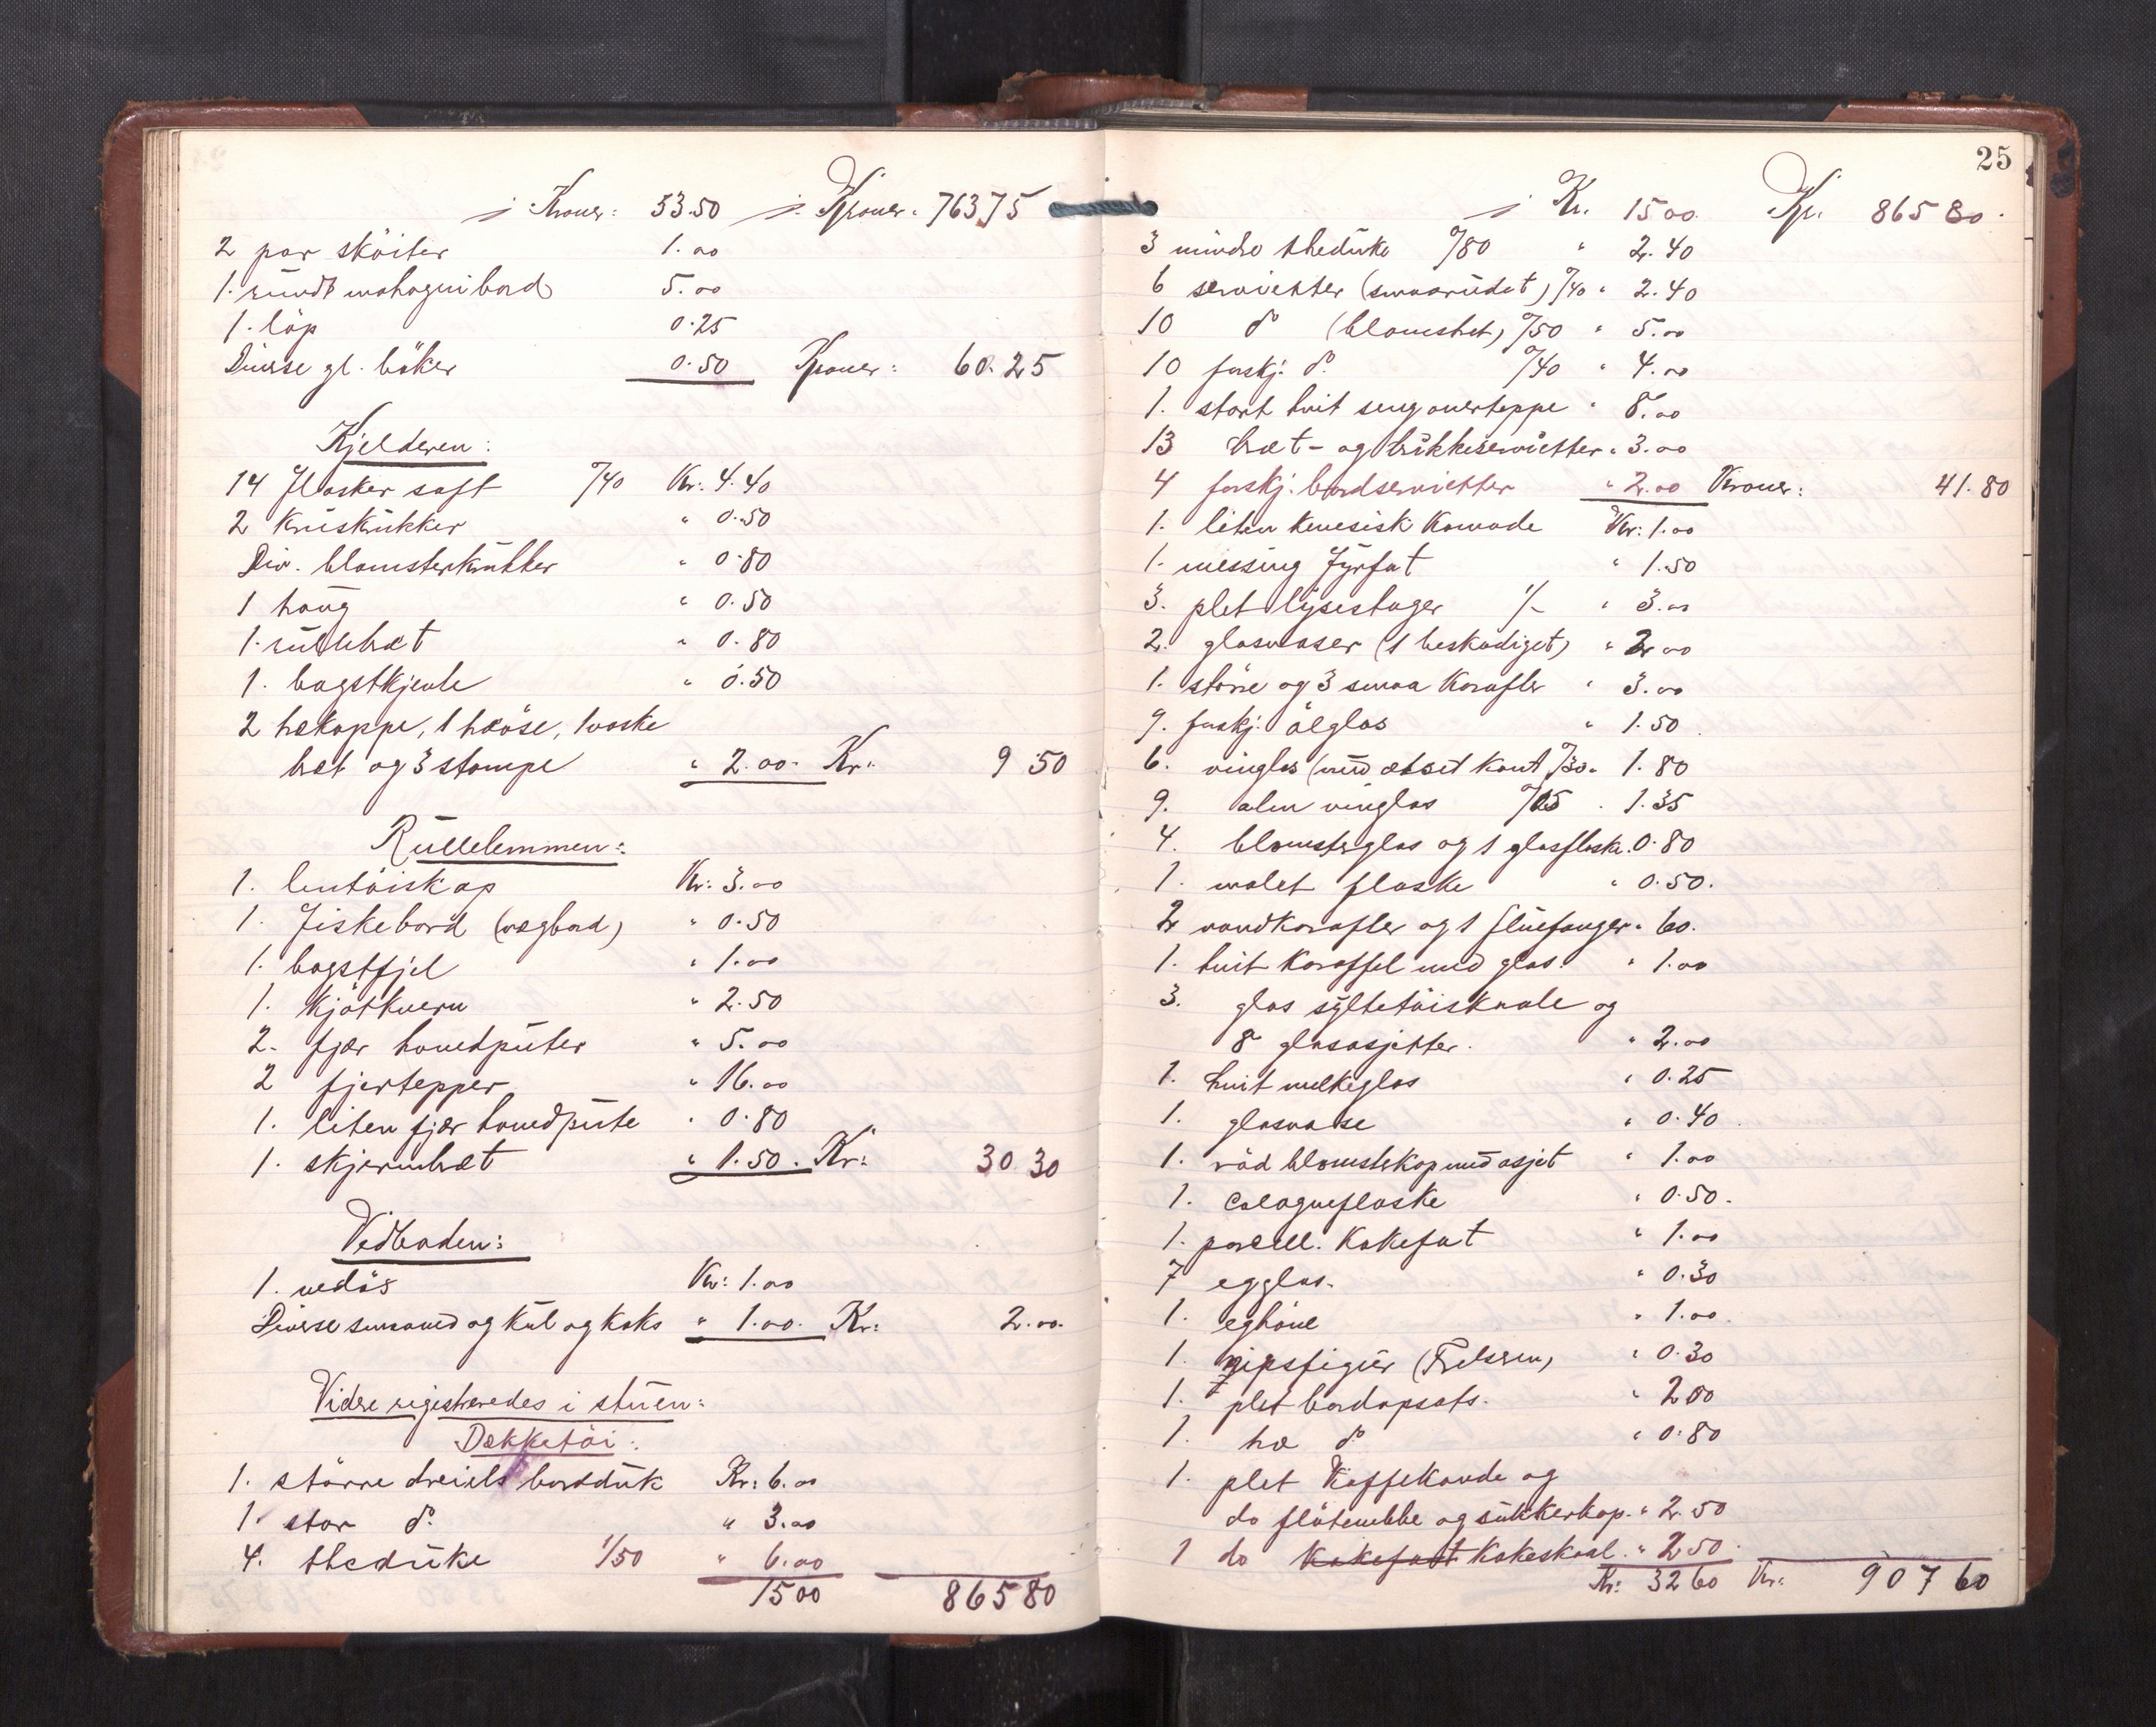 j. Kroner: 53.50 j. Kroner: 763.75
2 par sköiter 1.00
1. rundt mahognibord 5.00
1. löp 0.25
Diverse gl. böker 0.50 Kroner: 60.25
Kjelderen:
14 flasker saft %40 Kr: 4.40
2 Kruskrukker " 0.50
Div. blomsterkrukker " 0.80
1 haug " 0.50
1. rullebræt " 0.80
1. bagstkjevle " 0.50
2 trækoppe, 1 træöse, 1 vaske
bræt og 3 stampe " 2.00. Kr: 9.50
Rullelemmen:
1. lintöiskap Kr: 3.00
1. fiskebord (vægbord) " 0.50
1. bagstfjel " 1.00
1. Kjötkvern " 2.50
2. fjær hovedputer " 5.00
2 fjertepper " 16.00
1. liten fjær hovedpute " 0.80
1. skjermbræt " 1.50. Kr: 30 30
Vedboden:
1. vedös Kr: 1.00
Diverse smaaved og Kul og koks " 1.00. Kr: 2.00.
Videre registreredes i stuen:
Dækketöi:
1. större dreiels borddúk Kr: 6.00
1. stor do. " 3.00
4. theduke 1/50 " 6.00
15 00 865 80
25
j Kr. 15 00. Kr. 865 80.
3 mindre theduke %80 " 2.40
6 servietter (smaarudet) %40 " 2.40
10 do (blomstret) %50 " 5.00
10 forskj. do. %40 " 4.00
1. stort hvit sengoverteppe " 8.00
13 bræt- og brikkeservietter " 3.00
4 forskj. bordservietter " 2.00 Kroner: 41.80
1. liten kinesisk Komode Kr: 1.00
1. messing fyrfat " 1.50
3. plet lysestager 1/- " 3.00
2. glasvaser (1 beskadiget) " 2.00
1. större og 3 smaa Karafler " 3.00
9. forskj. ölglas " 1.50.
6. vinglas (med ætset kant %30 " 1.80
9. alm vinglas %15 . 1.35
4. blomsterglas og 1 glasflaske. 0.80
1. malet flaske " 0.50.
2 vandkarafler og 1 fluefanger " 60.
1. hvit Karaffel med glas. " 1.00
3. glas syltetöiskaale og
8 glasasjetter. " 2.00
1. hvit melkeglas " 0.25
1. glasvase " 0.40.
1. röd blomsterkop med asjet " 1.00
1. Cologneflaske " 0.50.
1. porcell. Kakefat " 1.00
7 egglas. " 0.30
1. eghöne " 1.00.
1. gipsfigur (Frelseren) " 0.30
1. plet bordopsats. " 2 00
1. træ do " 0.80
1. plet Kaffekande og
do flötemugge og sukkerkop. " 2.50
1 do Kakefat Kakeskaal. " 2 50.
Kr: 32 60 Kr: 907 60